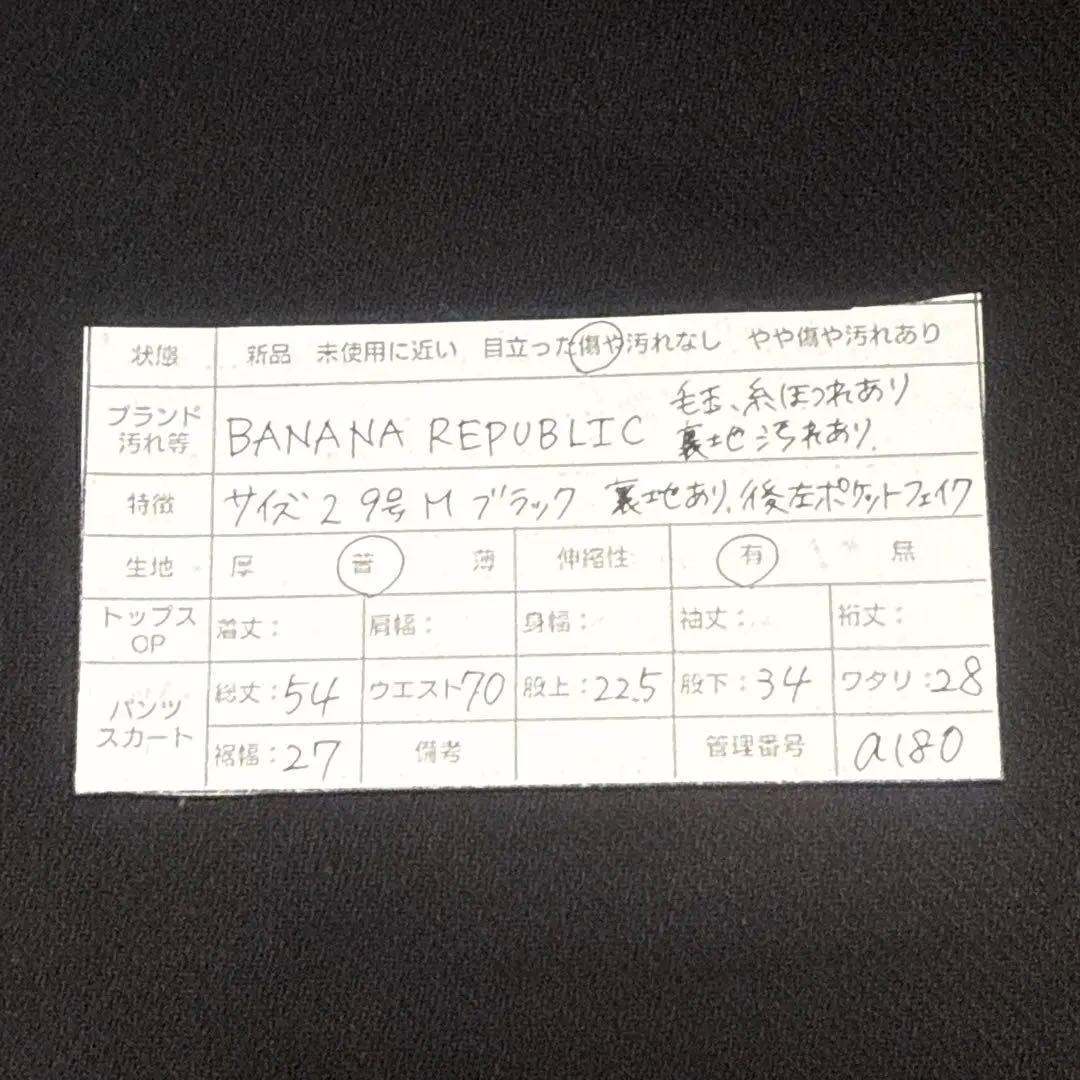 状態 新品 未使用に近い 目立った傷や汚れなし やや傷や汚れあり
ブランド 汚れ等 BANANA REPUBLIC 毛玉、糸ほつれあり
裏地汚れあり.
特徴 サイズ2 9号 M ブラック 裏地あり、後左ポケットフェイク
生地 厚 普 薄 伸縮性 有 無
トップス OP 着丈: 肩幅: 身幅: 袖丈: 裄丈:
パンツ スカート 総丈:54 ウエスト70 股上:22.5 股下:34 ワタリ:28
裾幅:27 備考 管理番号 a180